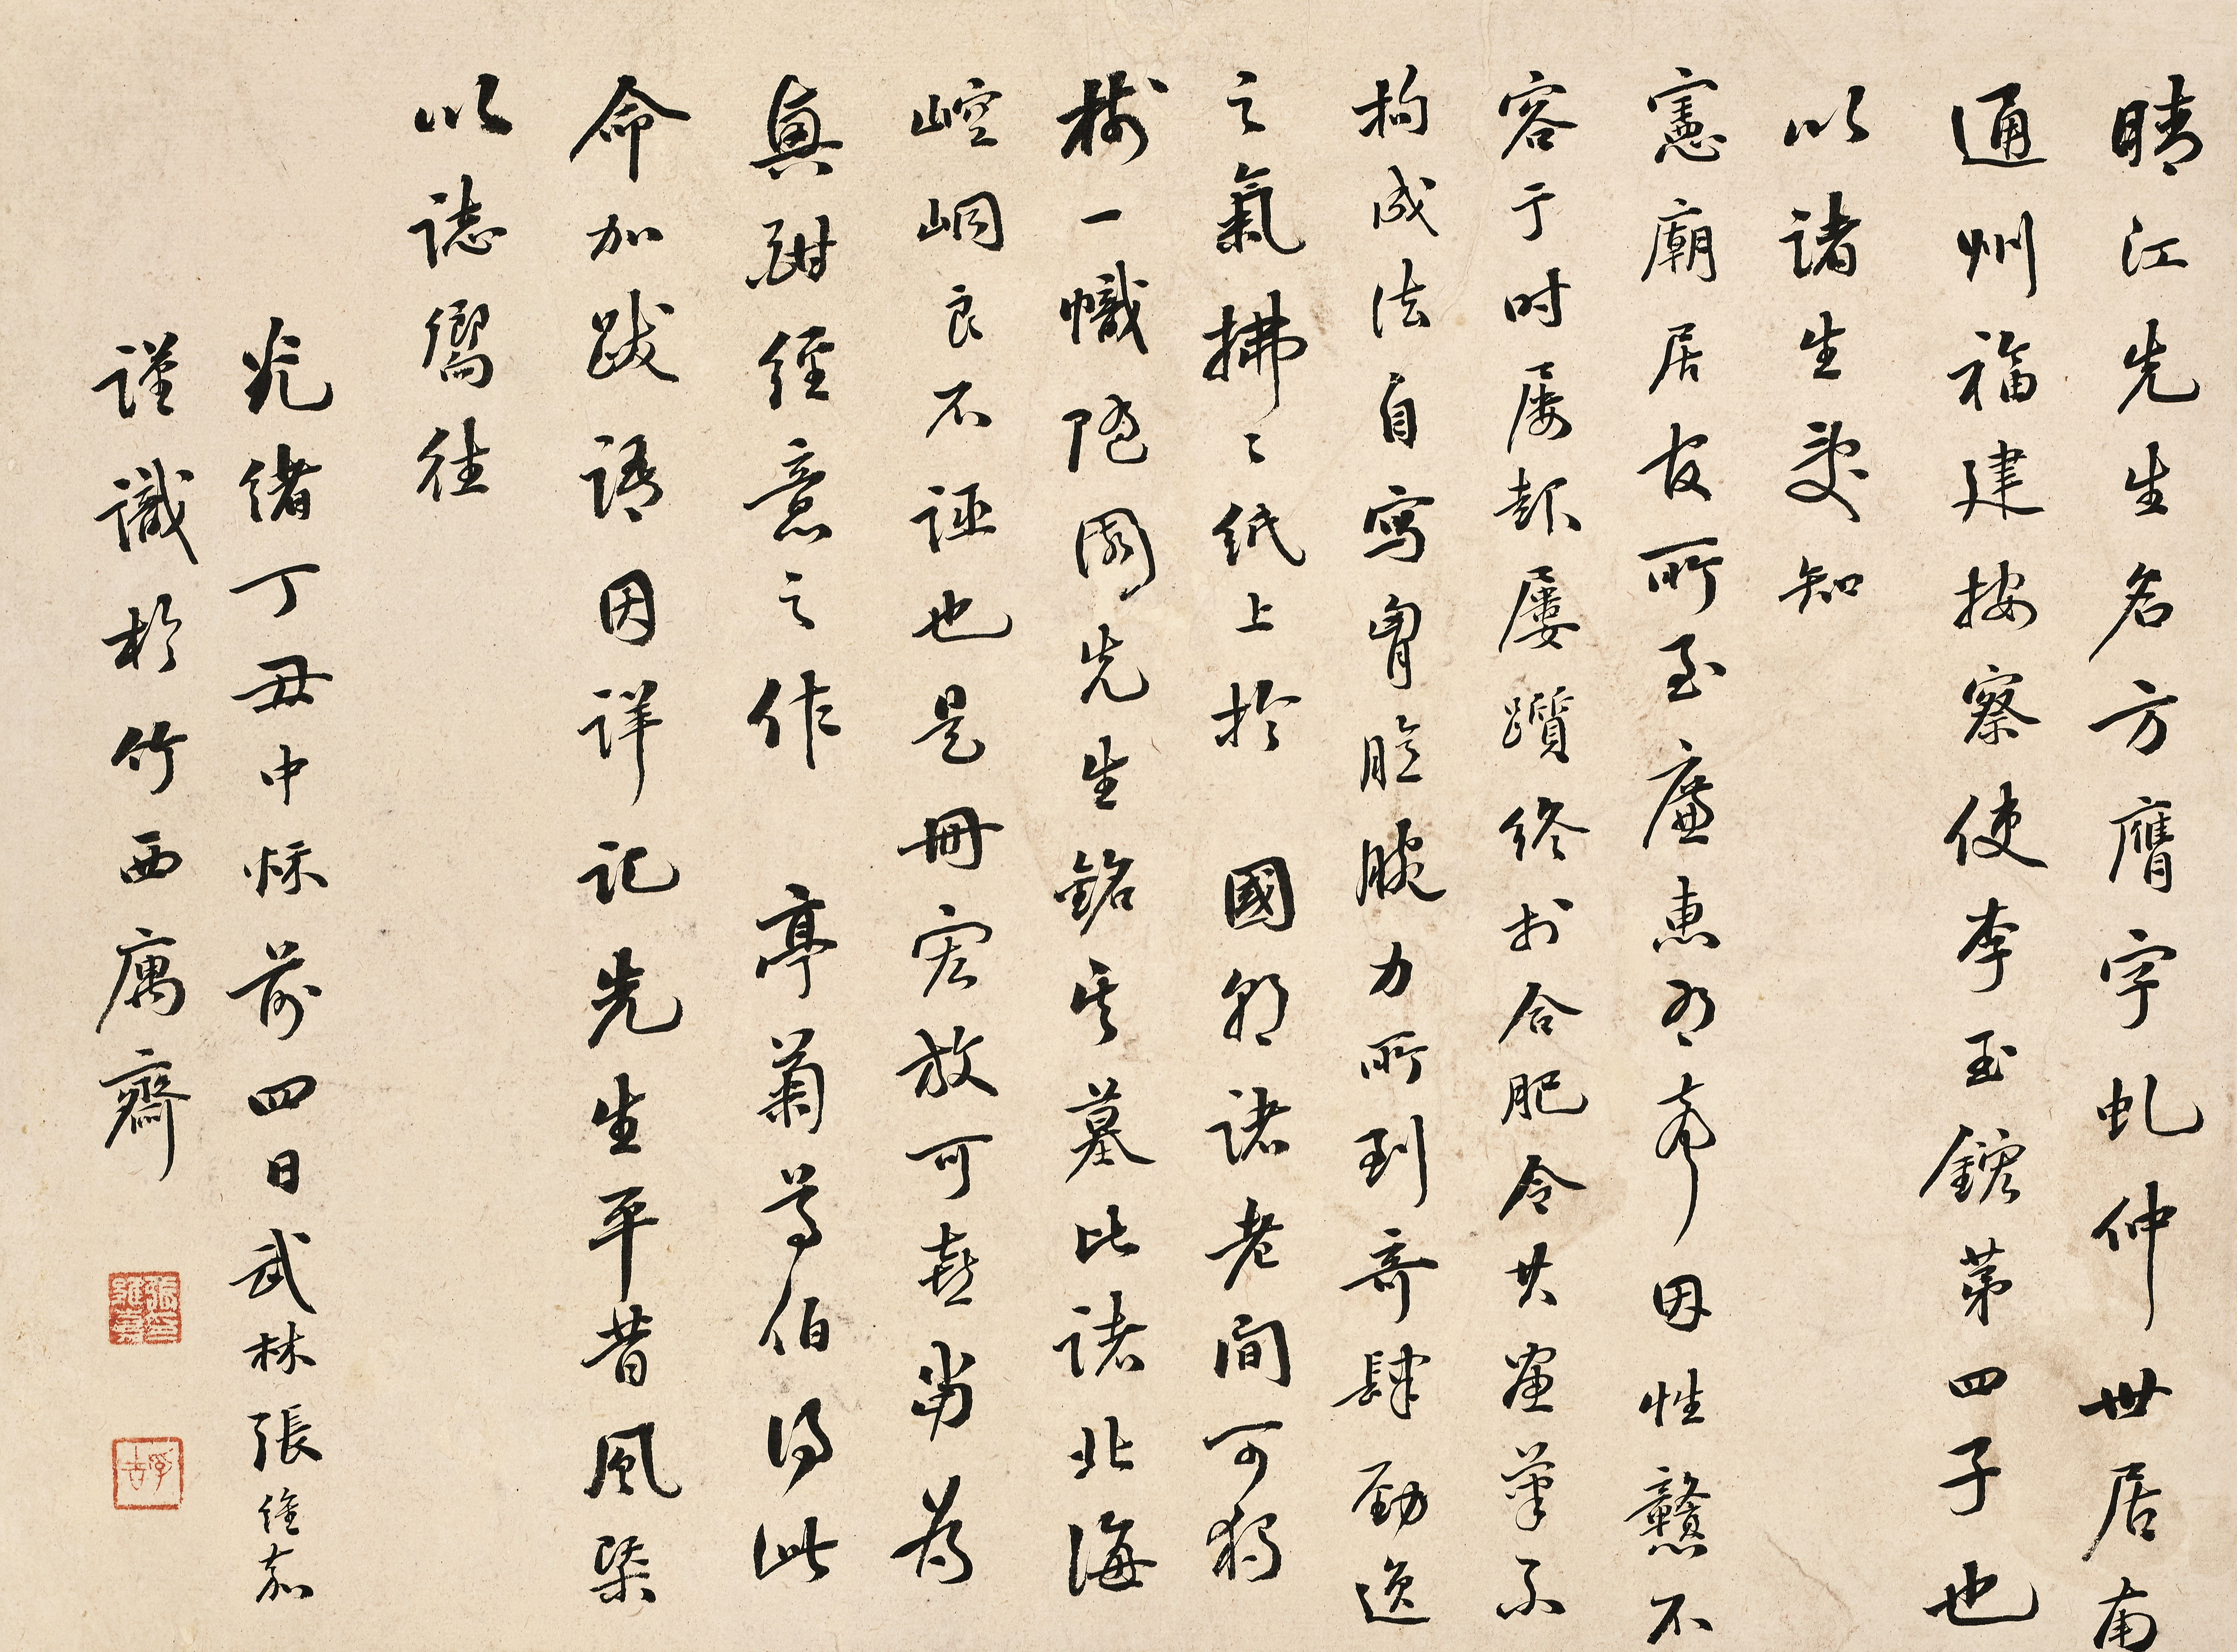 晴江先生名方膺字虬仲世居南
通州福建按察使李玉鋐第四子也
以諸生受知
憲廟居官所至廉惠有聲因性戇不
容于时屡起屢躓终于合肥令其画筆不
拘成法自寫胷臆腕力所到奇肆勁逸
之氣拂〻紙上於　國朝諸老间可獨
樹一幟隨園先生銘其墓比諸北海
崆峒良不誣也是冊宏放可喜当为
真酣經意之作　亭菊尊伯得此
命加跋語因详记先生平昔風槩
以誌嚮往
光绪丁丑中秌前四日武林張惟嘉
謹識於竹西寓齋